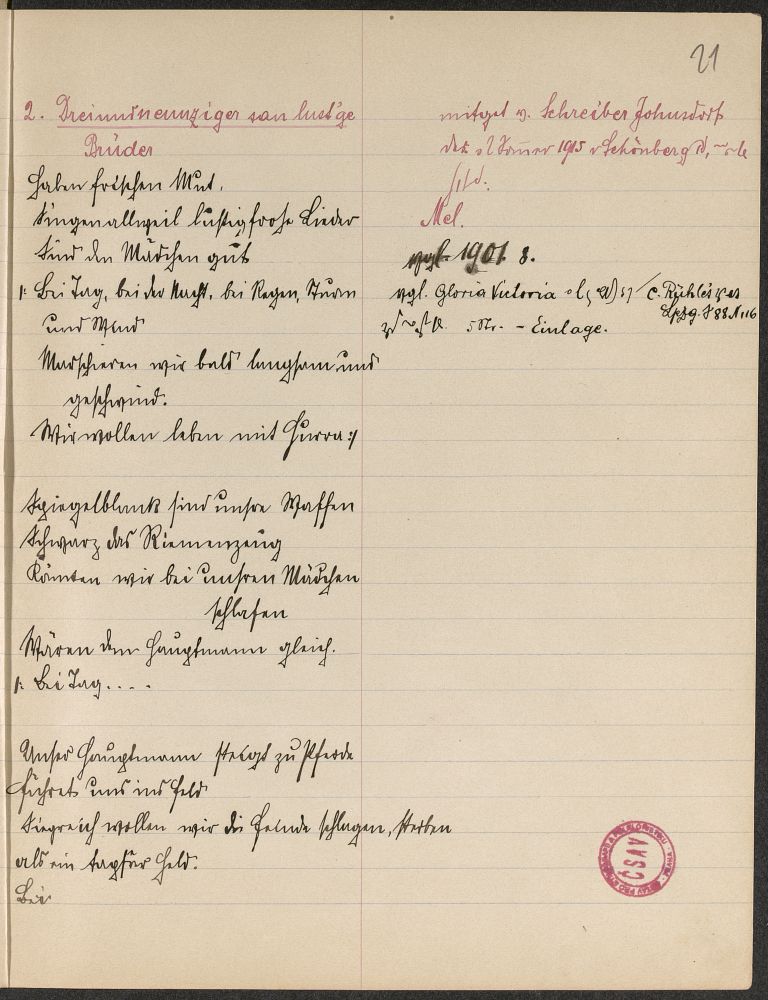 21
2. Dreiundneunziger san lust'ge
Brüder
Haben frischen Mut,
Singen allweil lustig frohe Lieder
Sind den Mädchen gut
|: Bei Tag, bei der Nacht, bei Regen, Sturm
und Wind
Marschieren wir bald langsam und
geschwind.
Wir wollen leben mit Hurra :|
Spiegelblank sind unsre Waffen
Schwarz das Riemenzeug
Könnten wir bei unsren Mädchen
schlafen
Wären dem Hauptmann gleich.
|: Bei Tag....
Unser Hauptmann steigt zu Pferde
Führet uns ins Feld
Siegreich wollen wir die Feinde schlagen, sterben
als ein tapfrer Held.
Bei
mitget v. Schreiber Johnsdorf
1915 Schönberg
Mel.
vgl. 1901 8.
vgl. Gloria Victoria
5 Str. - Einlage.
ČSAV